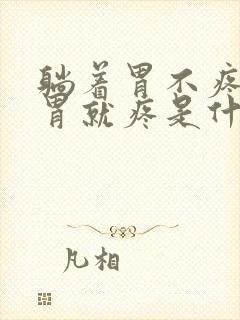 躺着胃不疼
胃就疼是什
凡相